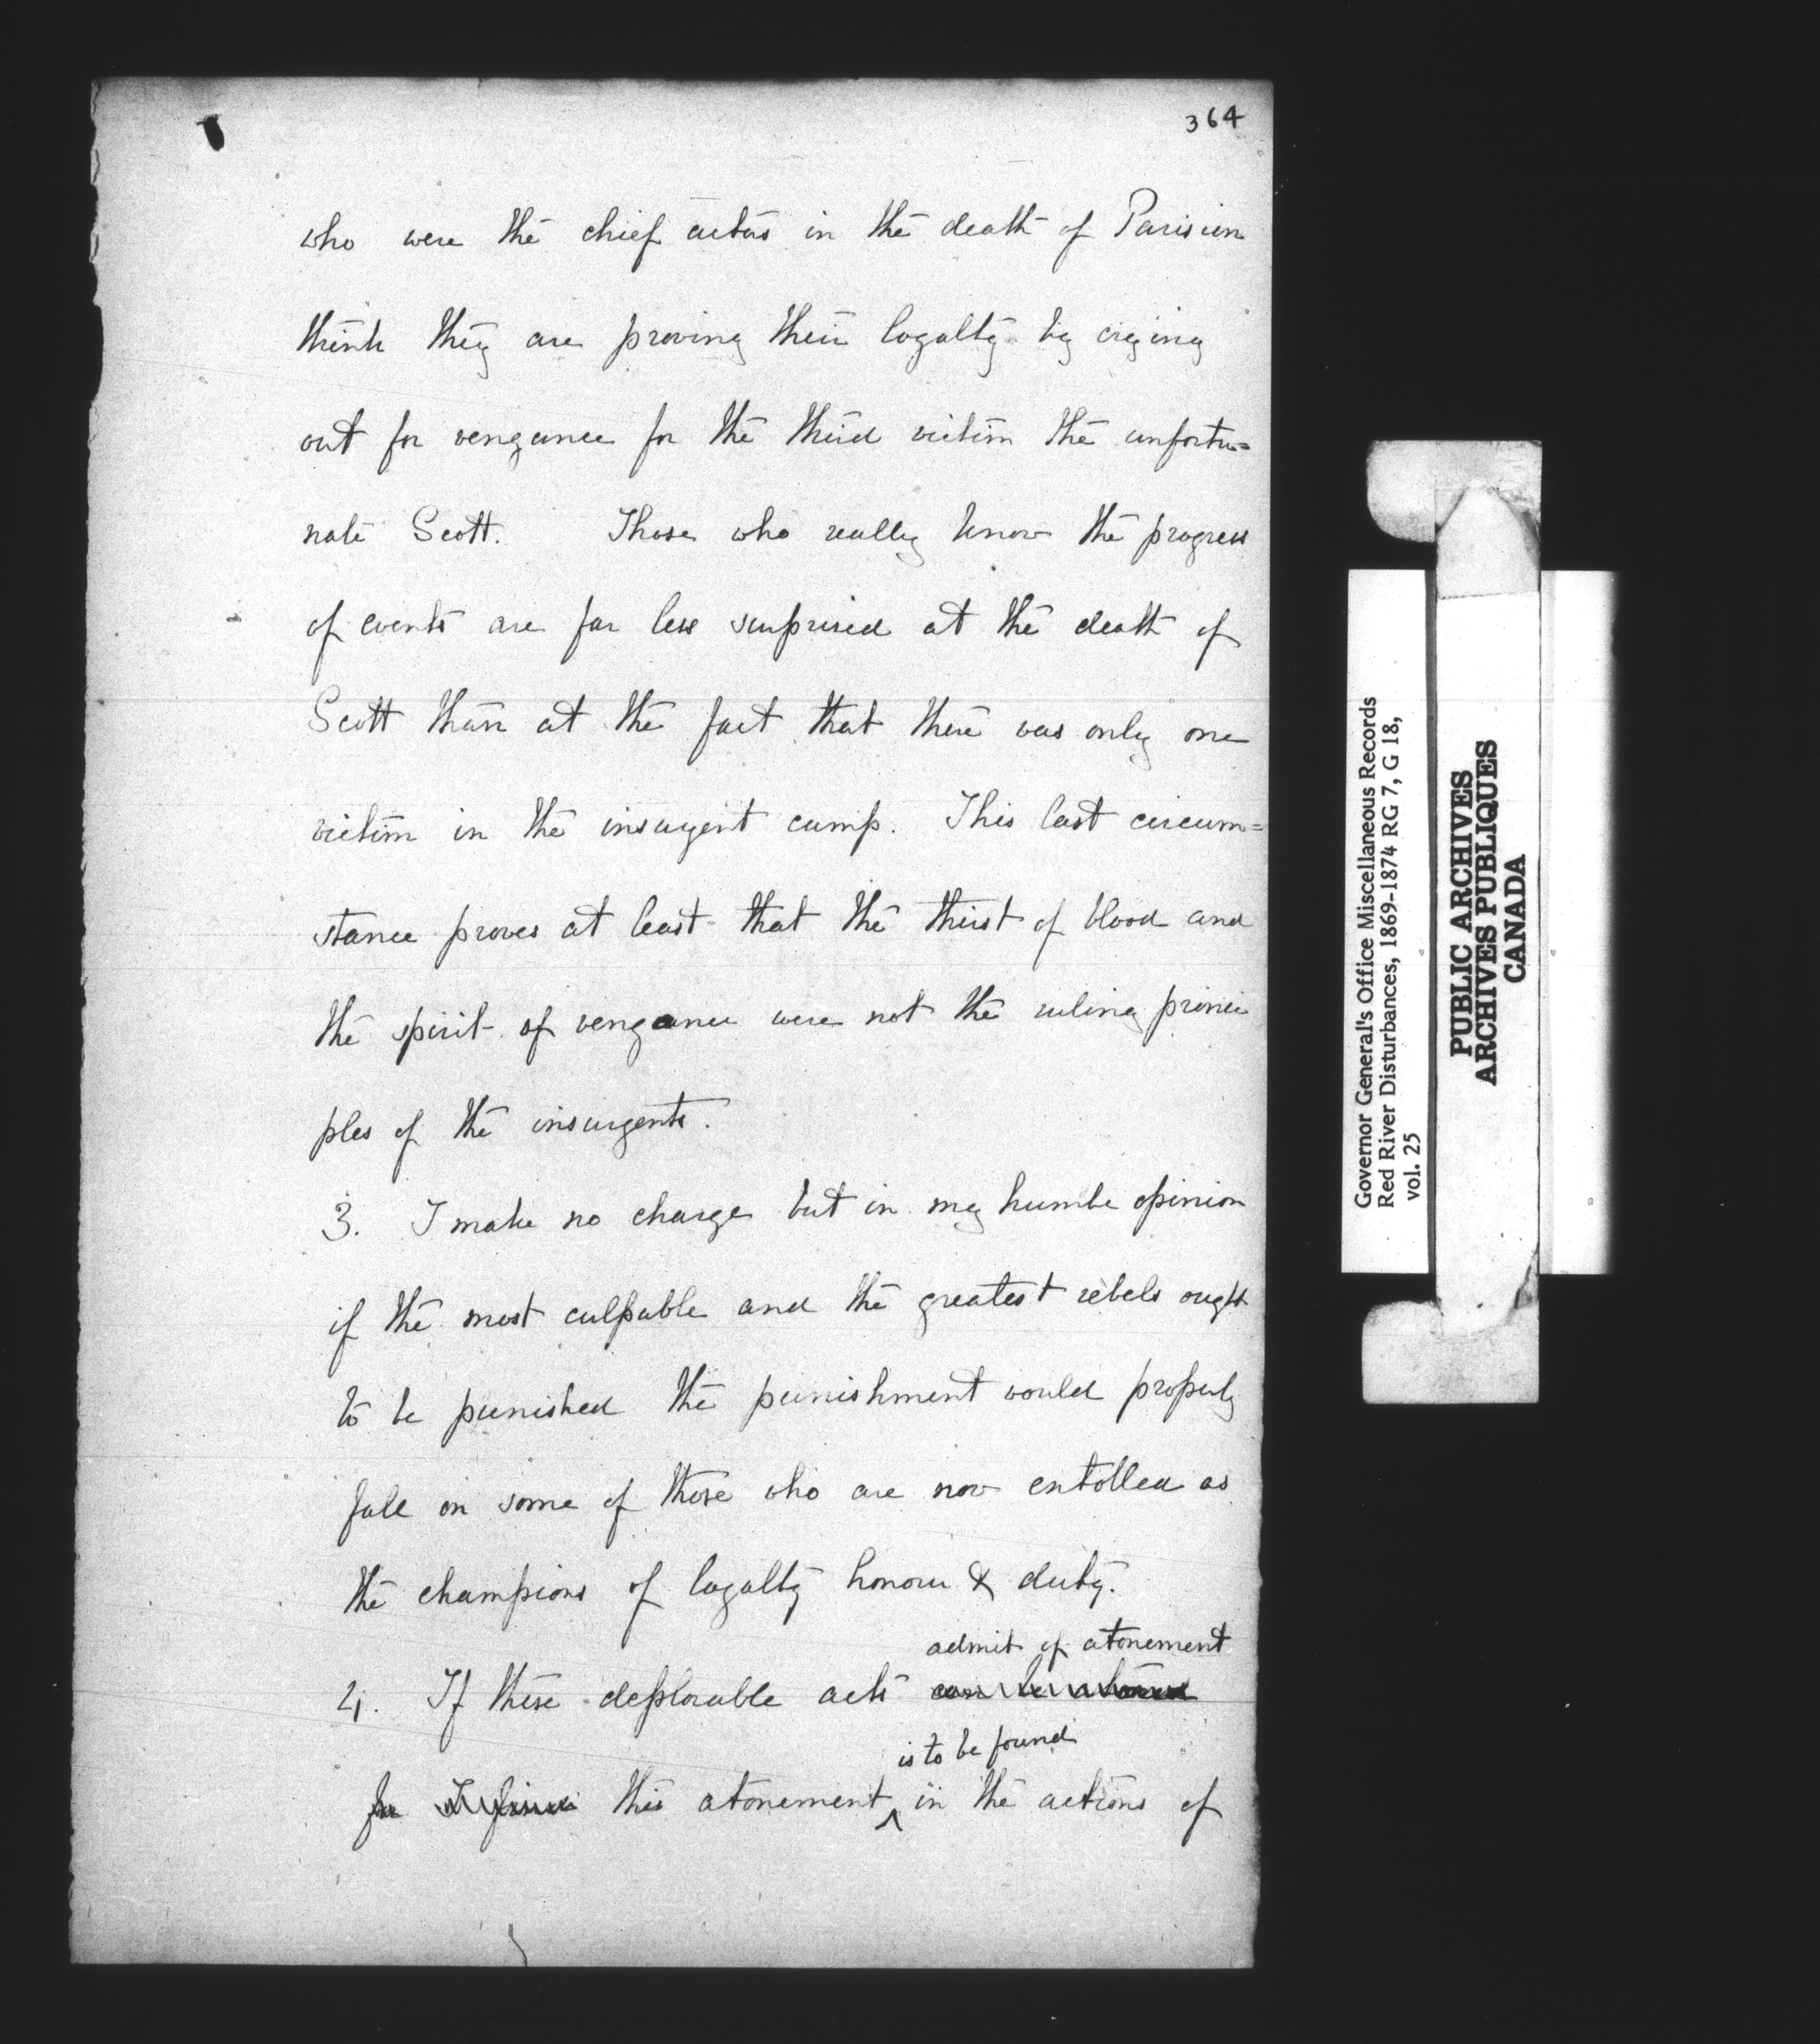 364
who were the chief actors in the death of Parisien
think they are proving their loyalty by crying
out for vengance for the third victim the unfortu=
nate Scott. Those who really know the progress
of events are far less surprised at the death of
Scott than at the fact that there was only one
victim in the insurgent camp. This last circum=
stance proves at least that the thirst of blood and
the spirit of vengance were not the ruling princi
ples of the insurgents.
3. I make no charge but in my humble opinion
if the most culpable and the greatest rebels ought
to be punished the punishment would properly
fall on some of those who are now extolled as
the champions of loyalty honour & duty.
admit of atonement
4. If these deplorable acts
is to be found
for I find this atonement in the actions of
Governor General's Office Miscellaneous Records
Red River Disturbances, 1869-1874 RG 7, G 18,
vol. 25
PUBLIC ARCHIVES
ARCHIVES PUBLIQUES
CANADA